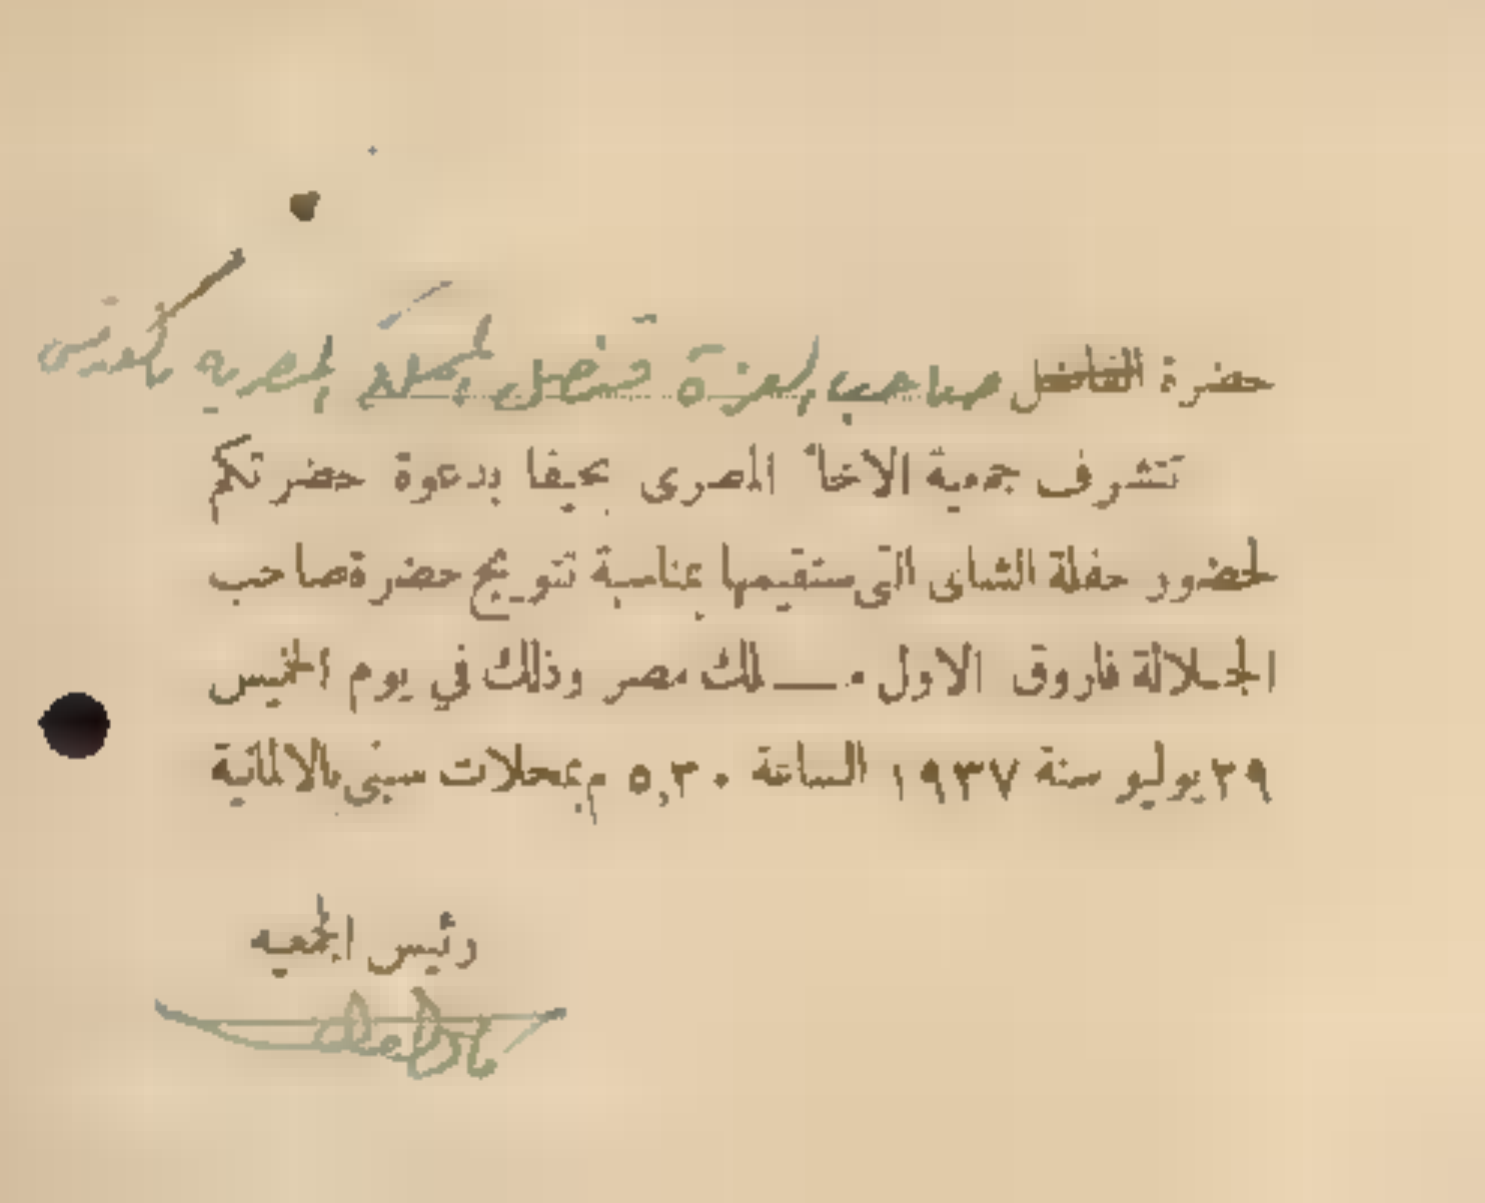 حضرة الفاضل صاحب العزة قنصل المملكة المصرية بالقدس
تتشرف جمعية الاخاء المصرى بحيفا بدعوة حضرتكم
لحضور حفلة الشاى التى ستقيمها بمناسبة تتويج حضرة صاحب
الجلالة فاروق الاول ملك مصر وذلك في يوم الخميس
٢٩ يوليو سنة ١٩٣٧ الساعة ٥,٣٠ م بمحلات سبنى بالالمانية
رئيس الجمعيه